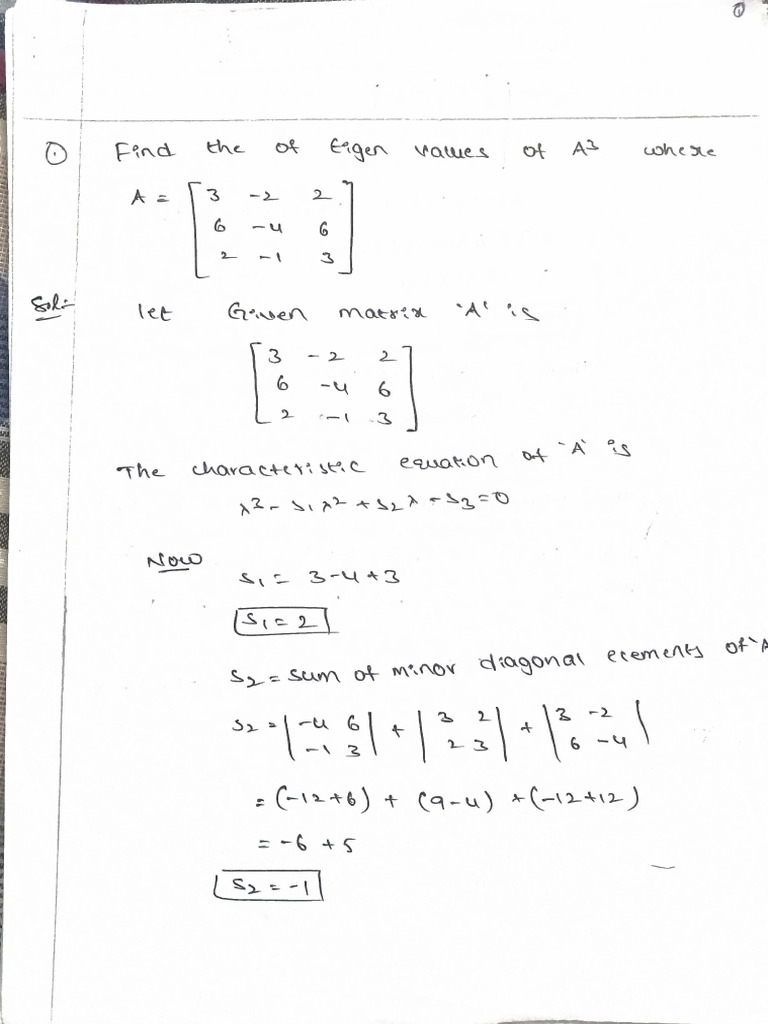 ①
① Find the of Eigen values of A3 where
A = [3 -2 2
6 -4 6
2 -1 3]
Sol:- let Given matrix 'A' is
[3 -2 2
6 -4 6
2 -1 3]
The characteristic equation of 'A' is
λ³ - S₁λ² + S₂λ - S₃ = 0
Now
S₁ = 3-4+3
S₁ = 2
S₂ = sum of minor diagonal elements of 'A
S₂ = |-4 6| + |3 2| + |3 -2|
|-1 3| |2 3| |6 -4|
= (-12+6) + (9-4) + (-12+12)
= -6 + 5
S₂ = -1